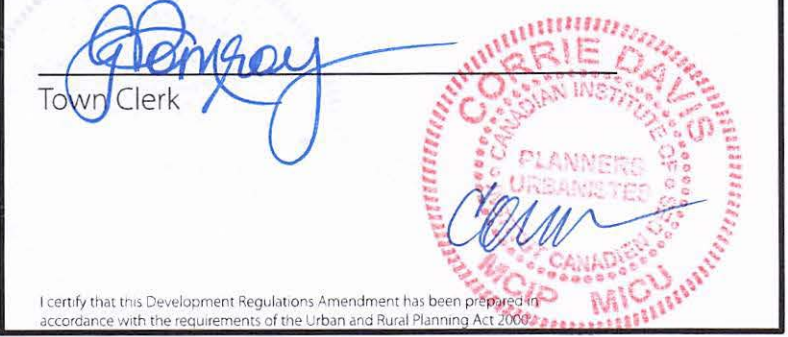 Town Clerk
CORRIE DAVIS
CANADIAN INSTITUTE OF
PLANNERS
URBANISTES
CANADIEN DES
MCIP MICU
I certify that this Development Regulations Amendment has been prepared in
accordance with the requirements of the Urban and Rural Planning Act 2000.